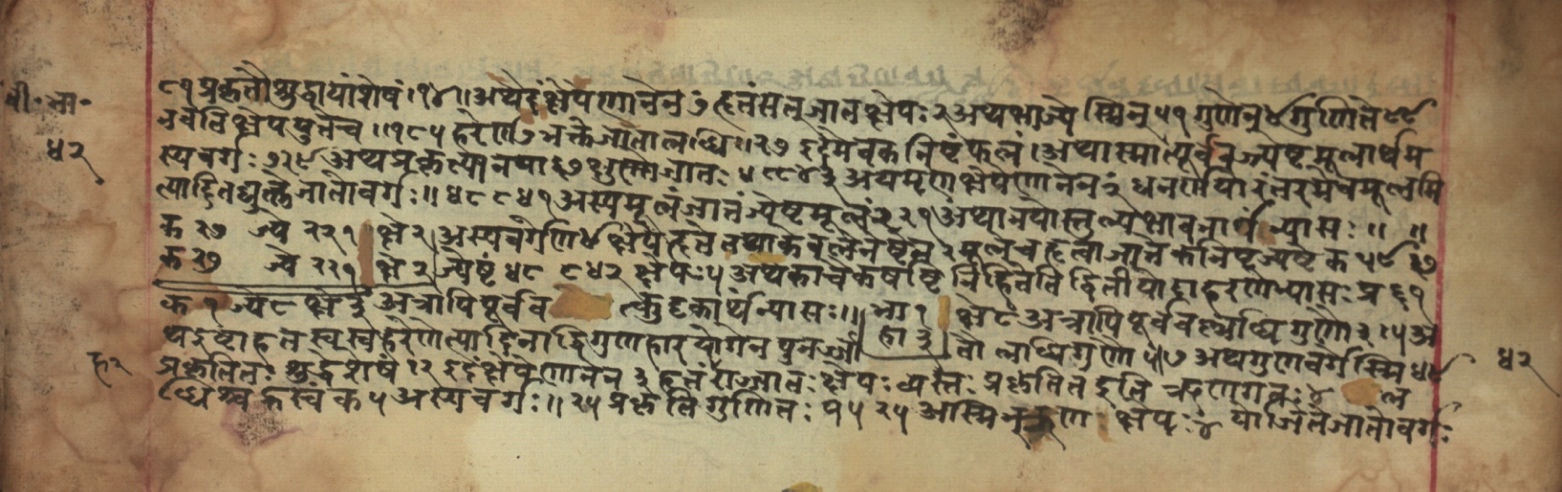 बी॰ भा॰
४२
८१ प्रकृतौ शुद्धायां शेषं १४॥ अथेदं क्षेपेणानेन ७ं हृतं सत् जातः क्षेपः २ अथ भाज्ये स्मिन् ११ गुणेन ९ गुणिते ९९
नवतिक्षेपयुते च॥१८९ हरेण ७ भक्ते जाता लब्धिः॥२७ इदमेव कनिष्टं फलं। अथास्मात्पूर्ववज्ज्येष्टमूलार्थम
स्य वर्गः ७२९ अथ प्रकृत्यानया ६७ क्षुण्णो जातः ४८८४३ अयमृणक्षेपेणानेन २ं धनर्णयोरंतरमेव मूलमि
त्यादितद्युक्ते जातो वर्गः॥ ४८८४१ अस्य मूलं जातं ज्येष्टमूलं २२१ अथानयोस्तुल्यभावनार्थं न्यासः॥ ॥
क २७ ज्ये २२१ क्षे २ अस्य वर्गेण ४ क्षेपे हृते
क २७ ज्ये २२१ क्षे २ ज्येष्टं ४८८४२ क्षेपः १ अथ काचकषष्टिनिहितेति द्वितीयोदाहरणे न्यासः प्र ६१
क १ ज्ये ८ क्षे ३ अत्रापि पूर्वव त्कुट्टकार्थं न्यासः॥ भा १ क्षे ८ अत्रापि पूर्ववल्लब्धिगुणौ ३।५ अ
थ इष्टाहतस्वस्वहरेणेत्यादिना द्विगुणहारयोगेन पुनर्जा हा ३ तौ लब्धिगुणौ ५।७ अथ गुणवर्गेस्मि ४९
प्रकृतितः शुद्धे शेषं १२ इदं क्षेपेणानेन ३ हृतं सज्जातः क्षेपः व्यस्तः प्रकृतित इति ऋणगतः ४ं ल
ब्धिश्च क ५ अस्य वर्गः॥ २५ प्रकृतिगुणितः १५२५ अस्मिन् ऋण क्षेपः ४ं योजिते जातो वर्गः
४२